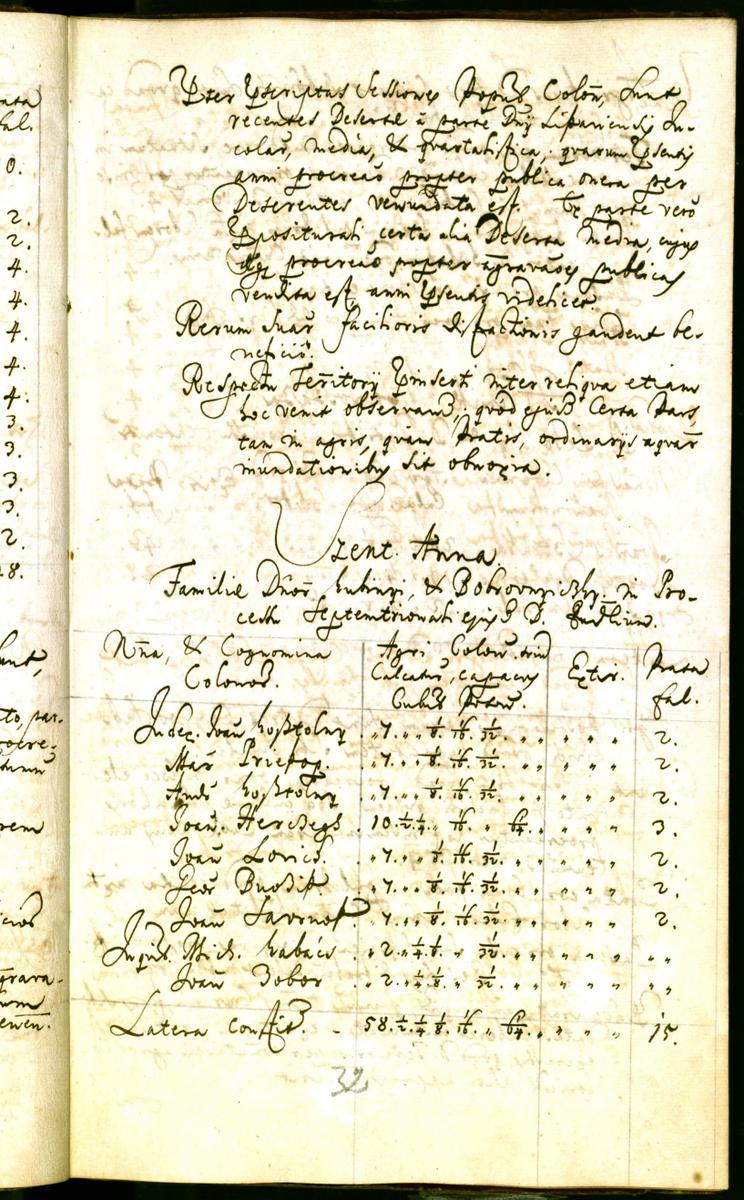 ata
fal.
0.
2.
2.
4.
4.
4.
4.
4.
3.
3.
3.
3.
2.
18.
sunt,
to, par-
rem
grava-
Pter Pscriptas Sessiones Popus Colon, sunt
recentes Desertæ à parte Dnj Lipariensis In-
colar, media, & quartalistica, quarum Psentis
anni procreao propter publica onera per
Deserentes venundata est. Ex parte vero
Ppositurali certa alia Deserta media, cujus
procreao propter agravaoes publicas
vendita est, anni Psentis videlicet.
Rerum suar facilioris distractionis gaudent be-
neficio.
Respectu Territorij Pinserti inter reliqua etiam
hoc venit observand, quod ejusd certa Pars,
tam in agris, quam Pratis, ordinarijs aquar
inundationibus sit obnoxia.
Szent. Anna
Familiæ Dnor Lubinyi, & Bobrovnyiczky in Pro-
cessu Septemtrionali ejusd D. Judlium.
Nna, & Cognomina
Colonor.
Agri Colon.
Calcatur, capaces
Cubul Poson.
Extir.
Prata
fal.
Judex. Joan Kosztolny . „ 7. „ „ 1/8. 1/16. 1/32. „ „ „ „ „ 2.
Mar Priekop. . „ 7. „ „ 1/8. 1/16. 1/32. „ „ „ „ „ 2.
Andr Kosztolny „ 7. „ „ 1/8. 1/16. 1/32. „ „ „ „ „ 2.
Joan. Herczegh . 10. 1/2. 1/4. „ 1/16. „ 1/64. „ „ „ 3.
Joan Lovics. . „ 7. „ „ 1/8. 1/16. 1/32. „ „ „ „ „ 2.
Geor Budis. . „ 7. „ „ 1/8. 1/16. 1/32. „ „ „ „ „ 2.
Joan Lavrnos . „ 7. „ „ 1/8. 1/16. 1/32. „ „ „ „ „ 2.
Inquil. Mich. Kabács . „ 2. „ 1/4. 1/8. „ 1/32. „ „ „ „ „ „ „
Joan Bobor . „ 2. „ 1/4. 1/8. „ 1/32. „ „ „ „ „ „ „
Latera constit. - 58. 1/2. 1/4. 1/8. 1/16. „ 1/64. „ „ „ „ 15.
32